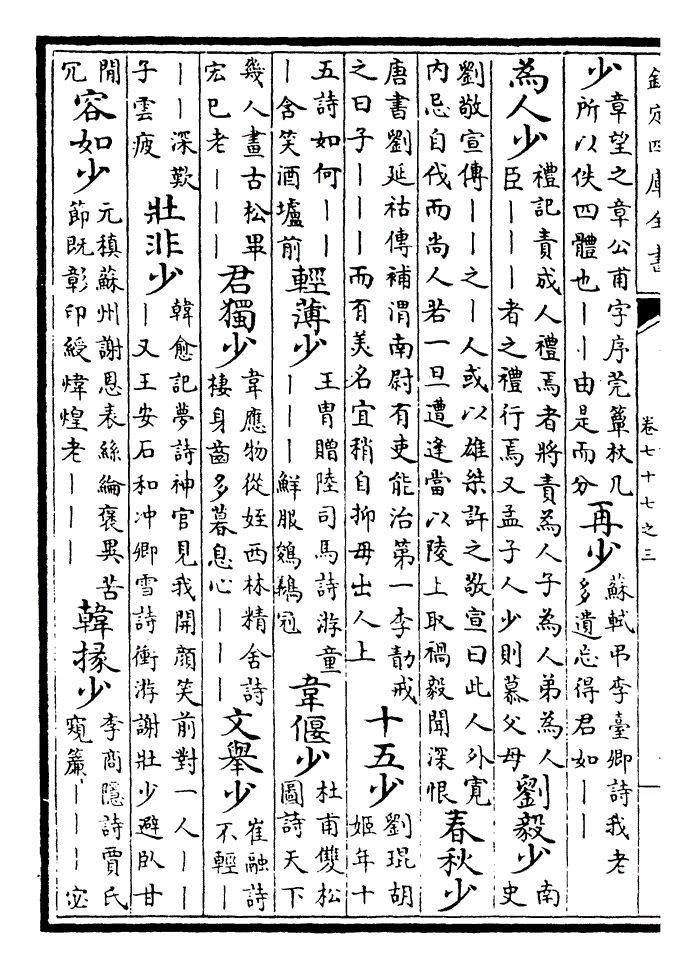 欽定四庫全書
卷七十七之三
少
章望之章公甫字序莞簟杖几
所以佚四體也｜｜由是而分
再少
蘇軾弔李臺卿詩我老
多遺忘得君如｜｜
為人少
禮記責成人禮焉者將責為人子為人弟為人
臣｜｜｜者之禮行焉又孟子人少則慕父母
劉毅少
南
史
劉敬宣傳｜｜之｜人或以雄桀許之敬宣曰此人外寛
内忌自伐而尚人若一旦遭逢當以陵上取禍毅聞深恨
春秋少
唐書劉延祜傳補渭南尉有吏能治第一李勣戒
之曰子｜｜｜而有美名宜稍自抑毋出人上
十五少
劉琨胡
姬年十
五詩如何｜｜
｜含笑酒壚前
輕薄少
王胄贈陸司馬詩游童
｜｜｜鮮服鵕鸃冠
韋偃少
杜甫雙松
圖詩天下
幾人畫古松畢
宏已老｜｜｜
君獨少
韋應物從姪西林精舍詩
棲身齒多暮息心｜｜｜
文舉少
崔融詩
不輕｜
｜｜深歎
子雲疲
壯非少
韓愈記夢詩神官見我開顔笑前對一人｜｜
｜又王安石和冲卿雪詩衝游謝壯少避卧甘
閒
冗
容如少
元稹蘇州謝恩表絲綸褒異苦
節既彰印綬煒煌老｜｜｜
韓掾少
李商隱詩賈氏
窺簾｜｜｜宓